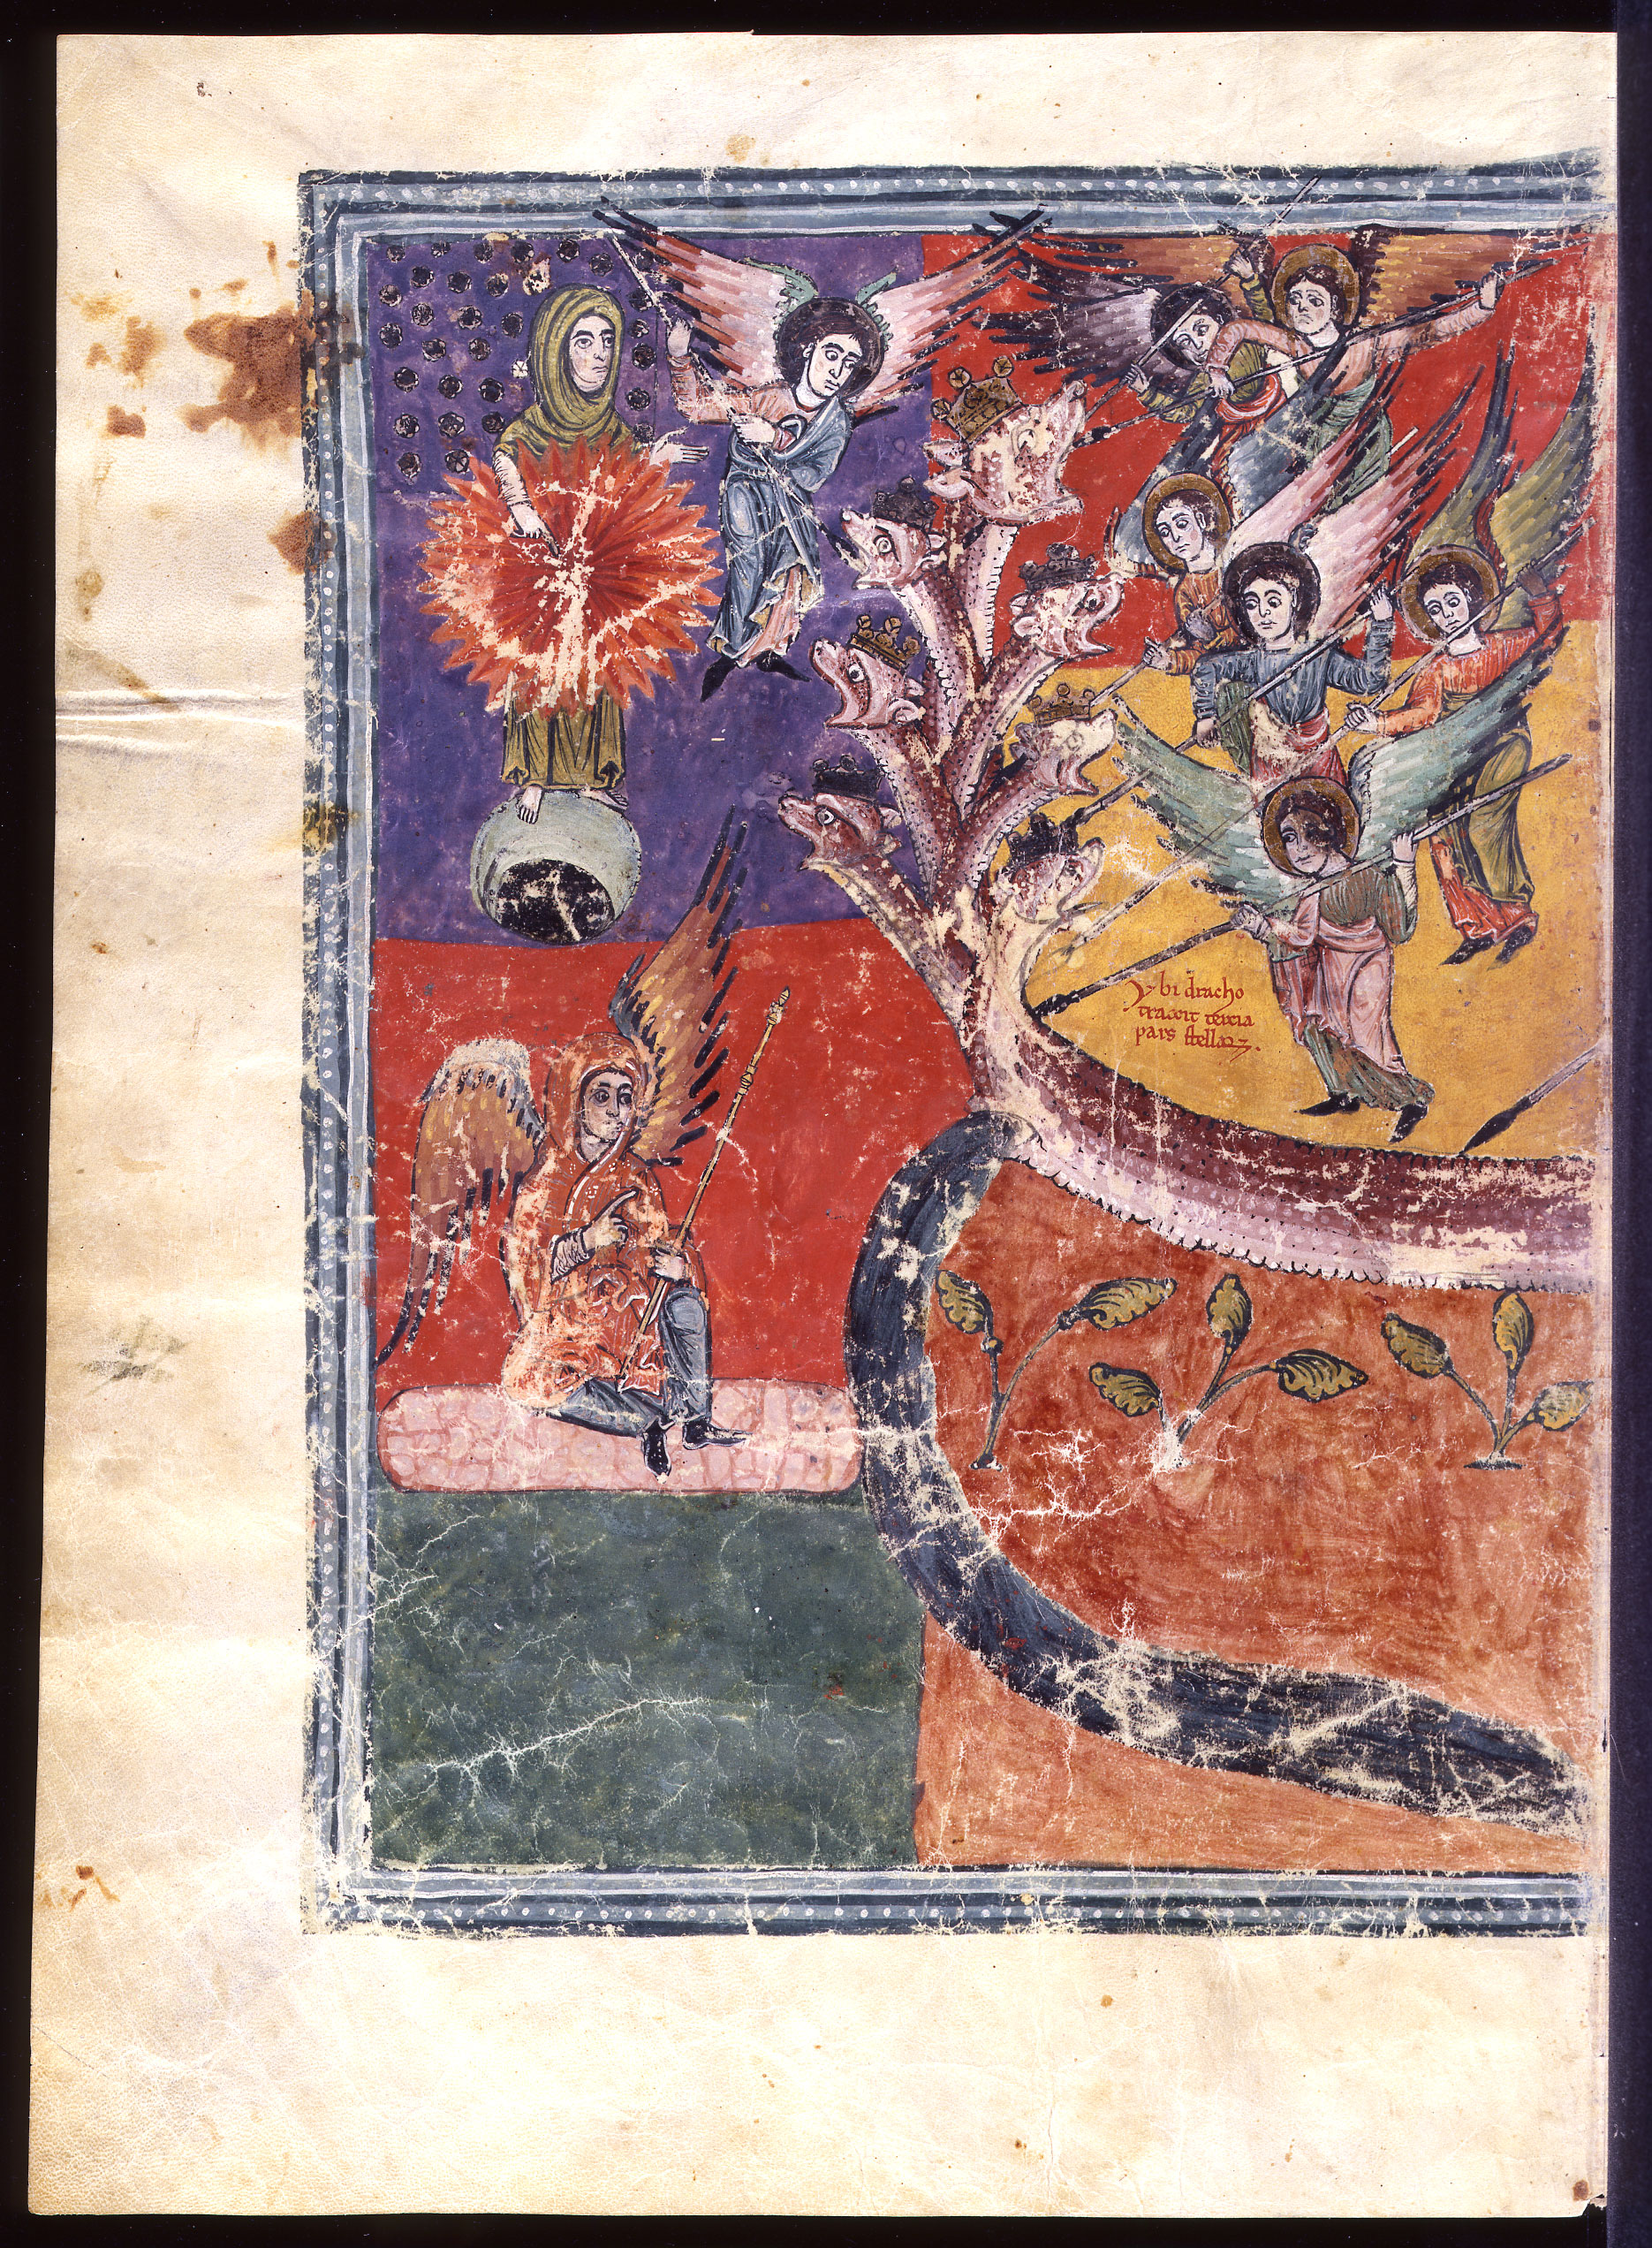 Ybi dracho
traxit tercia
pars stellarꝝ.